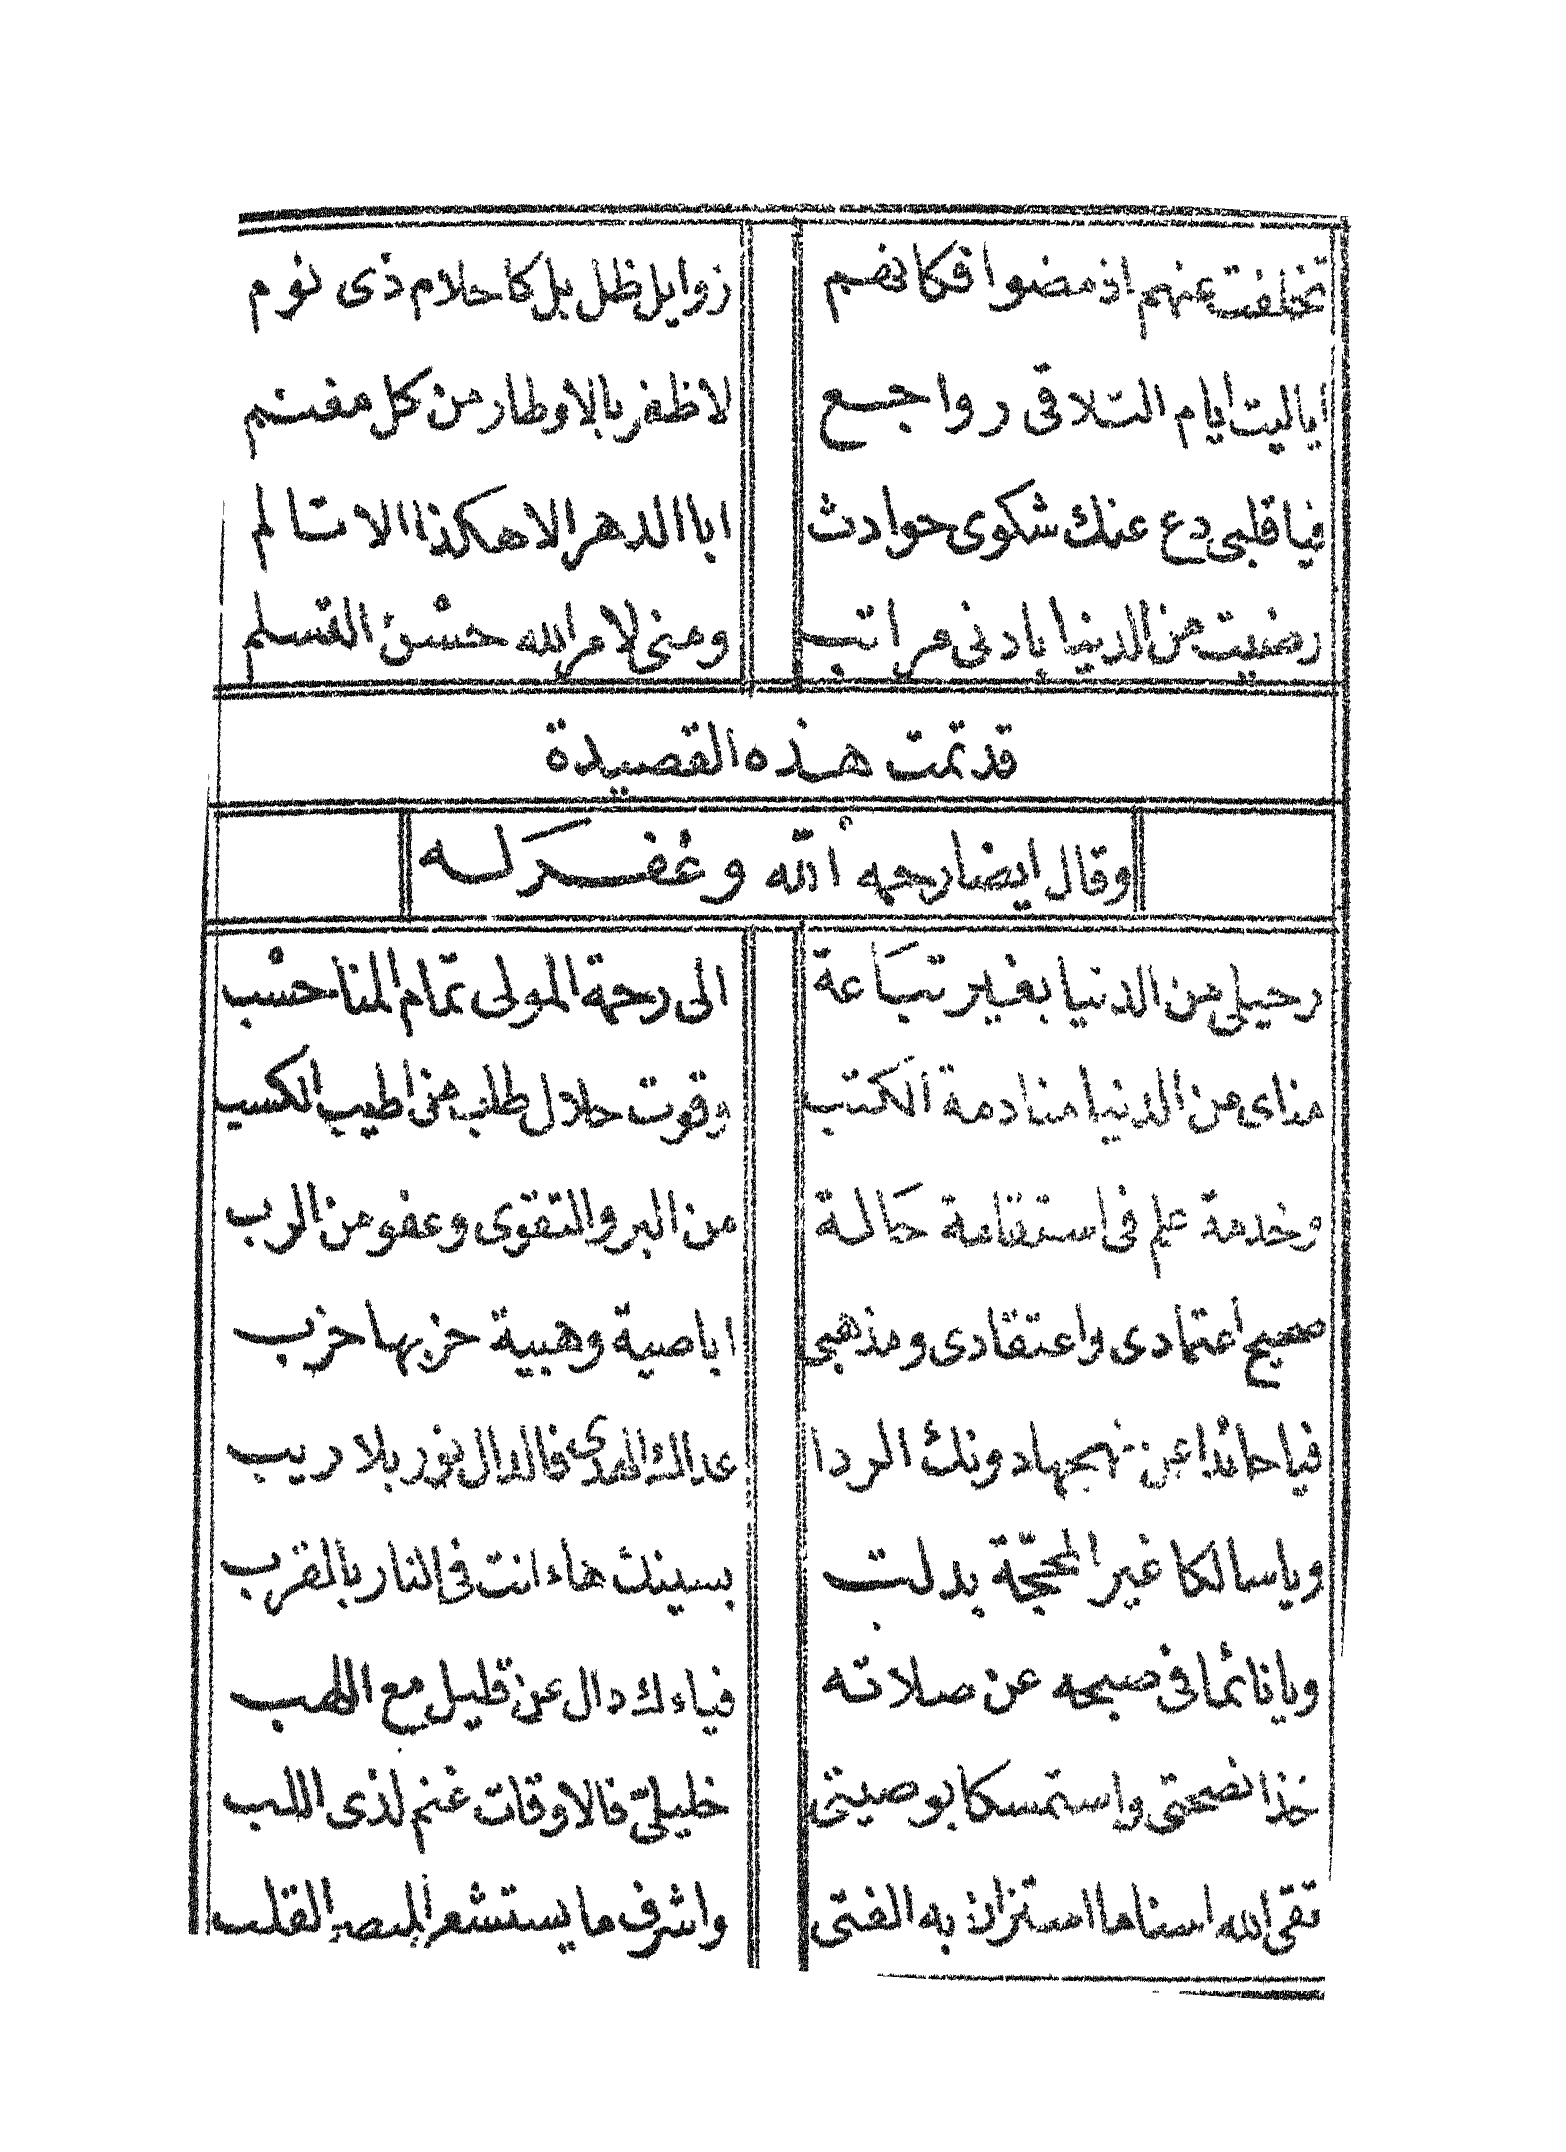 تخلفت عنهم اذ مضوا فكانهم زوايل ظل بل كاحلام ذى نوم
اياليت ايام التلاقى رواجع لاظفر بالاوطار من كل مغنم
فيا قلبى دع عنك شكوى حوادث ابا الدهر الا هكذا الا تسالم
رضيت من الدنيا بادنى مراتب ومنى لامر الله حسن القسلم
قد تمت هذه القصيدة
وقال ايضا رحمه الله وغفر له
رحيلى من الدنيا بغير تباعة الى رحمة المولى تمام المنا حسب
مناى من الدنيا منادمة الكتب وقوت حلال طلب من اطيب الكسب
وخدمة علم فى استقامة حالة من البر والتقوى وعفو من الرب
صحيح اعتمادى واعتقادى ومذهبى اباضية وهبية حزبها حزب
فيا حائدا عن نهجها دونك الردا عداك الهدى فالدال نور بلا ريب
ويا سالكا غير المحجة بدلت بسينك هاء انت فى النار بالقرب
ويا نائما فى صبحه عن صلاته فياءك دال عن قليل مع اللهب
خذا نصحتى واستمسكا بوصيتى خليلىّ فالاوقات غنم لذى اللب
تقى الله اسنا ما استزان به الفتى واشرف ما يستشعر القلب